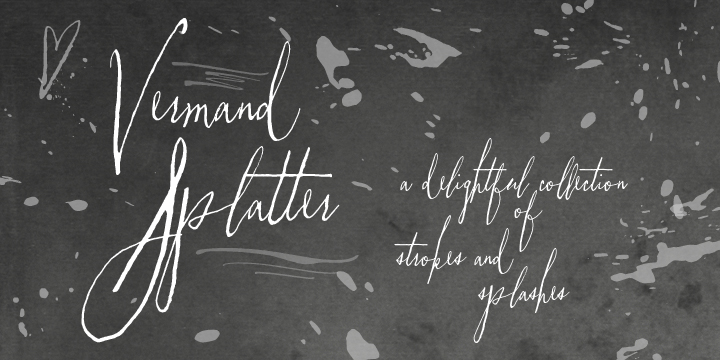 Vermand
Splatter
a delightful collection
of
strokes and
splashes